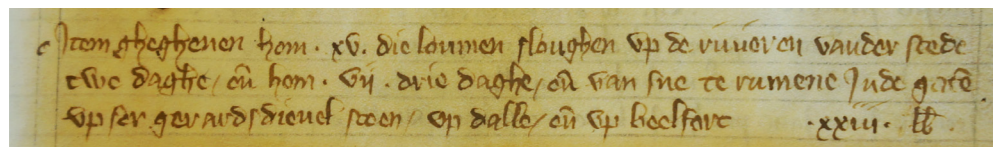 Item gheghenen hem . xv . die loumen sloughen vp de riuieren vander stede
twe daghe / en̄ hem . vij . drie daghe / en̄ van sne te rumene Jnde gatē
vp ser gerards dieuel steen / vp dalle / en̄ vp beelfort . xxiij . lb̄ .